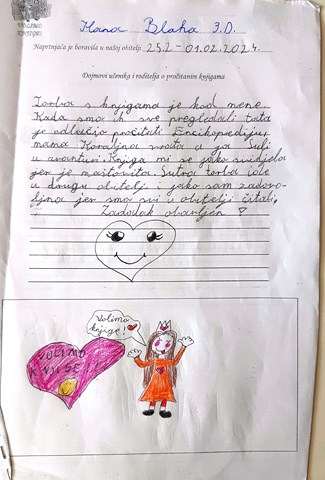 Hana Blaha 3.D.
Naprtnjača je boravila u našoj obitelji 25.2 - 01.02.2024.
Dojmovi učenika i roditelja o pročitanim knjigama
Torba s knjigama je kod mene.
Kada smo ih sve pregledali tata
je odlučio pročitati Enciklopediju,
mama Koraljna vrata a ja Juli
u avanturi. Knjiga mi se jako svidjela
jer je maštovita. Sutra torba ide
u drugu obitelj i jako sam zadovo-
ljna jer smo svi u obitelji čitali,
Zadatak obavljen
Volimo
knjige!
VOLIMO
KNJIGE!